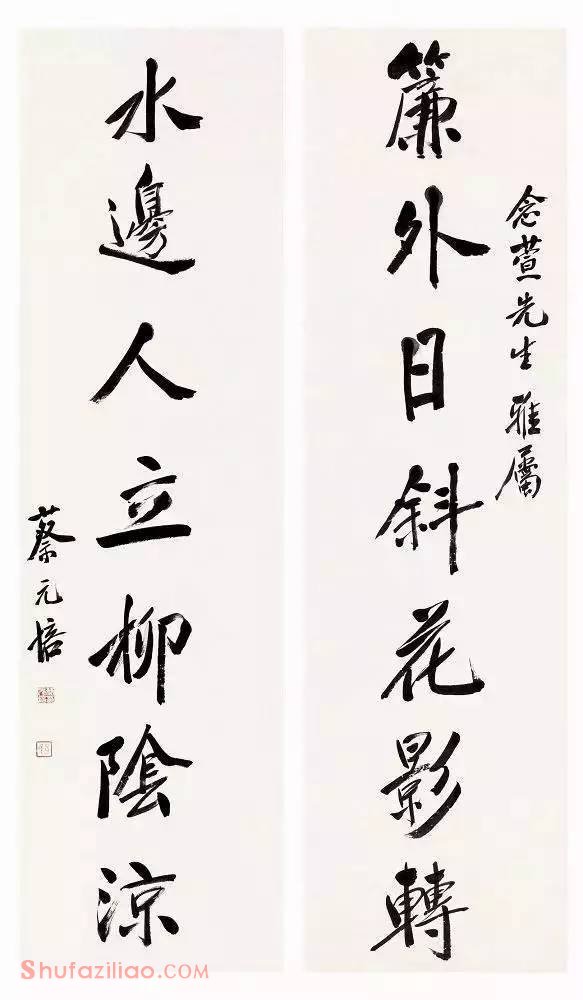 念萱先生雅屬
簾外日斜花影轉
水邊人立柳陰涼
蔡元培
Shufaziliao.com